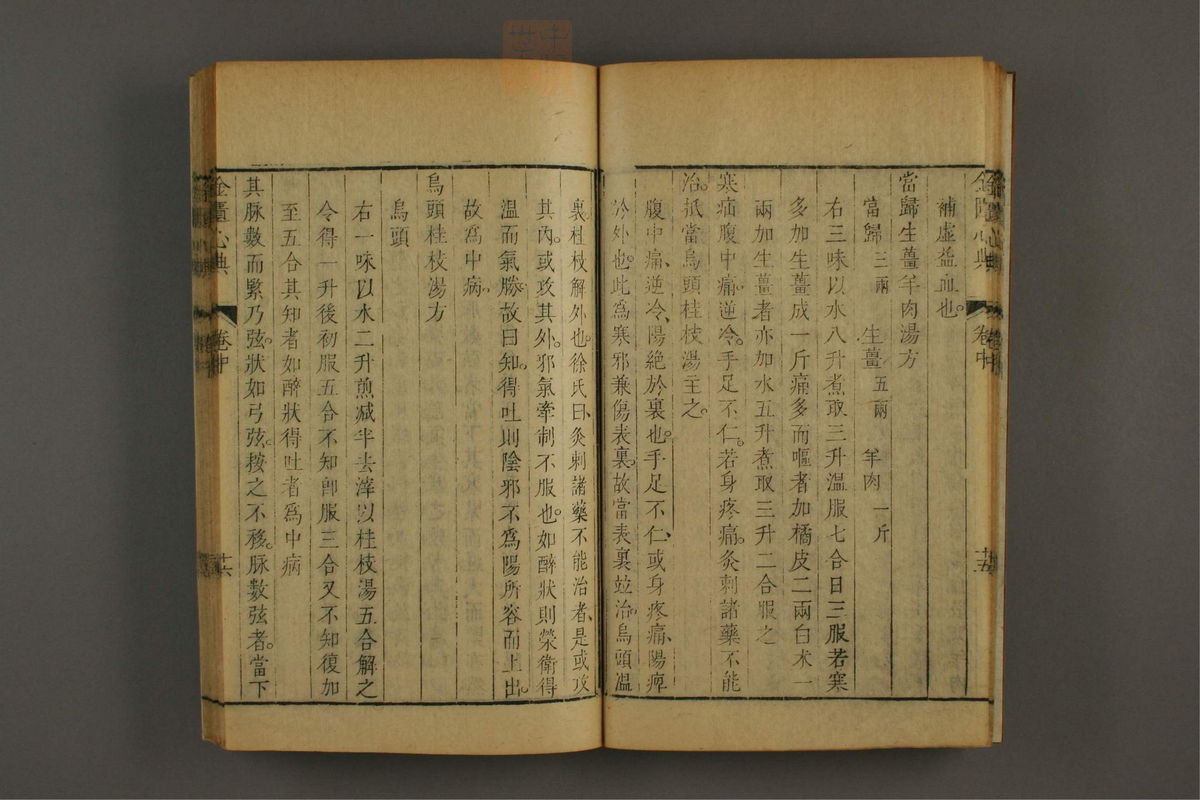 金匱心典
卷中
十五
補虛益血也。
當歸生薑羊肉湯方
當歸三兩 生薑五兩 羊肉一斤
右三味以水八升煮取三升溫服七合日三服若寒
多加生薑成一斤痛多而嘔者加橘皮二兩白朮一
兩加生薑者亦加水五升煮取三升二合服之
寒疝腹中痛。逆冷。手足不仁。若身疼痛。灸刺諸藥不能
治。抵當烏頭桂枝湯主之。
腹中痛、逆冷、陽絕於裏也。手足不仁、或身疼痛、陽痺
於外也。此爲寒邪兼傷表裏。故當表裏竝治。烏頭溫
裏、桂枝解外也。徐氏曰、灸刺諸藥不能治者、是或攻
其內。或攻其外。邪氣牽制不服也。如醉狀則榮衛得
溫而氣勝。故曰知。得吐則陰邪不爲陽所容而上出。
故爲中病。
烏頭桂枝湯方
烏頭
右一味以水二升煎減半去滓以桂枝湯五合解之
令得一升後初服五合不知卽服三合又不知復加
至五合其知者如醉狀得吐者爲中病
其脉數而緊乃弦。狀如弓弦。按之不移。脉數弦者。當下
金匱心典
卷中
十六